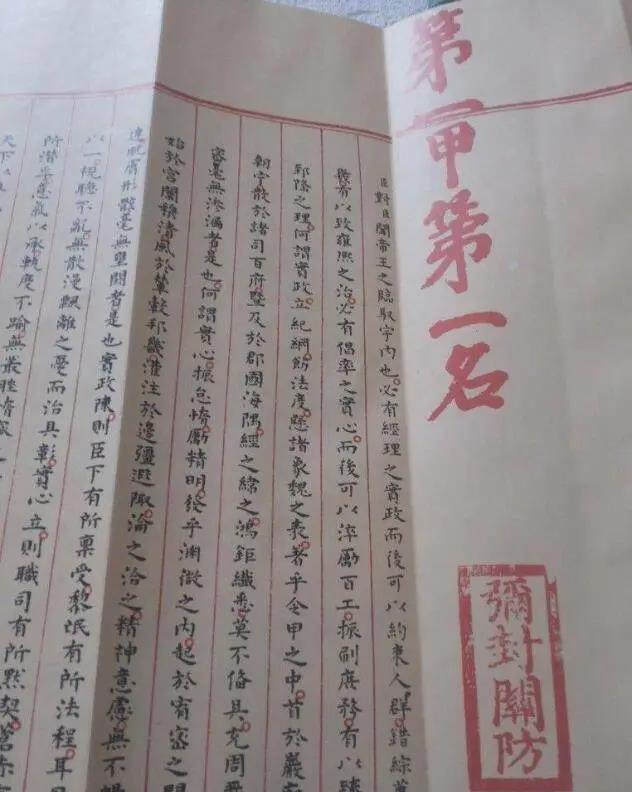 第一甲第一名
彌封關防
臣對臣聞帝王之臨馭宇內也必有經理之實政而後可以約束人群錯綜萬
幾有以致雍熙之治必有倡率之實心而後可以淬勵百工振刷庶務有以臻
郅隆之理何謂實政立紀綱飭法度懸諸象魏之表著乎令甲之中首於巖
朝宁散於諸司百府暨及於郡國海隅經之緯之鴻鉅纖悉莫不備具充周嚴
密毫無滲漏者是也何謂實心振怠惰勵精明發乎淵微之內起於宥密之間
始於宮闈穆清風於輦轂邦畿灌注於邊疆遐陬淪之洽之精神意慮無不暢
達肌膚形骸毫無壅閼者是也實政陳則臣下有所稟受黎氓有所法程耳目
以一視聽不亂無散漫飄離之憂而治具彰實心立則職司有所默契蒼赤
所潛孚意氣以承軌度不踰無叢脞惰窳之
天下